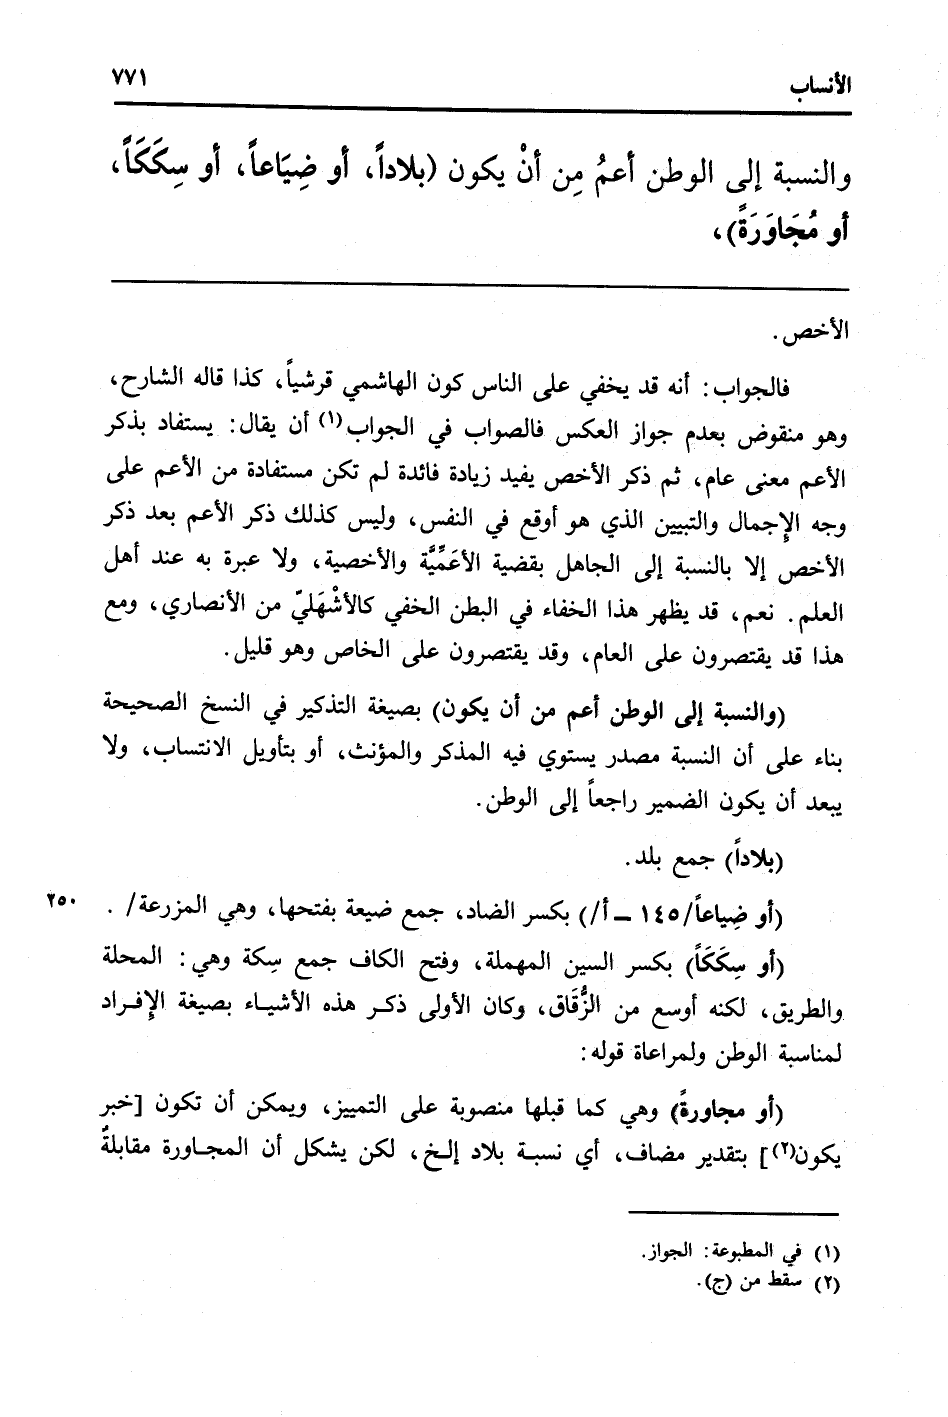 الأنساب ٧٧١
والنسبة إلى الوطن أعمُ مِن أنْ يكون (بلاداً، أو ضِيَاعاً، أو سِكَكَاً،
أو مُجَاوَرَةً)،
الأخص.
فالجواب: أنه قد يخفي على الناس كون الهاشمي قرشياً، كذا قاله الشارح،
وهو منقوض بعدم جواز العكس فالصواب في الجواب(١) أن يقال: يستفاد بذكر
الأعم معنى عام، ثم ذكر الأخص يفيد زيادة فائدة لم تكن مستفادة من الأعم على
وجه الإجمال والتبيين الذي هو أوقع في النفس، وليس كذلك ذكر الأعم بعد ذكر
الأخص إلا بالنسبة إلى الجاهل بقضية الأعَمِّيَّة والأخصية، ولا عبرة به عند أهل
العلم. نعم، قد يظهر هذا الخفاء في البطن الخفي كالأشْهَليّ من الأنصاري، ومع
هذا قد يقتصرون على العام، وقد يقتصرون على الخاص وهو قليل.
(والنسبة إلى الوطن أعم من أن يكون) بصيغة التذكير في النسخ الصحيحة
بناء على أن النسبة مصدر يستوي فيه المذكر والمؤنث، أو بتأويل الانتساب، ولا
يبعد أن يكون الضمير راجعاً إلى الوطن.
(بلاداً) جمع بلد.
(أو ضِياعاً/١٤٥ ـ أ/) بكسر الضاد، جمع ضيعة بفتحها، وهي المزرعة/ . ٢٥٠
(أو سِكَكَاً) بكسر السين المهملة، وفتح الكاف جمع سِكة وهي: المحلة
والطريق، لكنه أوسع من الزُّقَاق، وكان الأولى ذكر هذه الأشياء بصيغة الإفراد
لمناسبة الوطن ولمراعاة قوله:
(أو مجاورةً) وهي كما قبلها منصوبة على التمييز، ويمكن أن تكون [خبر
يكون(٢)] بتقدير مضاف، أي نسبة بلاد إلخ، لكن يشكل أن المجاورة مقابلةٌ
(١) في المطبوعة: الجواز.
(٢) سقط من (ج).